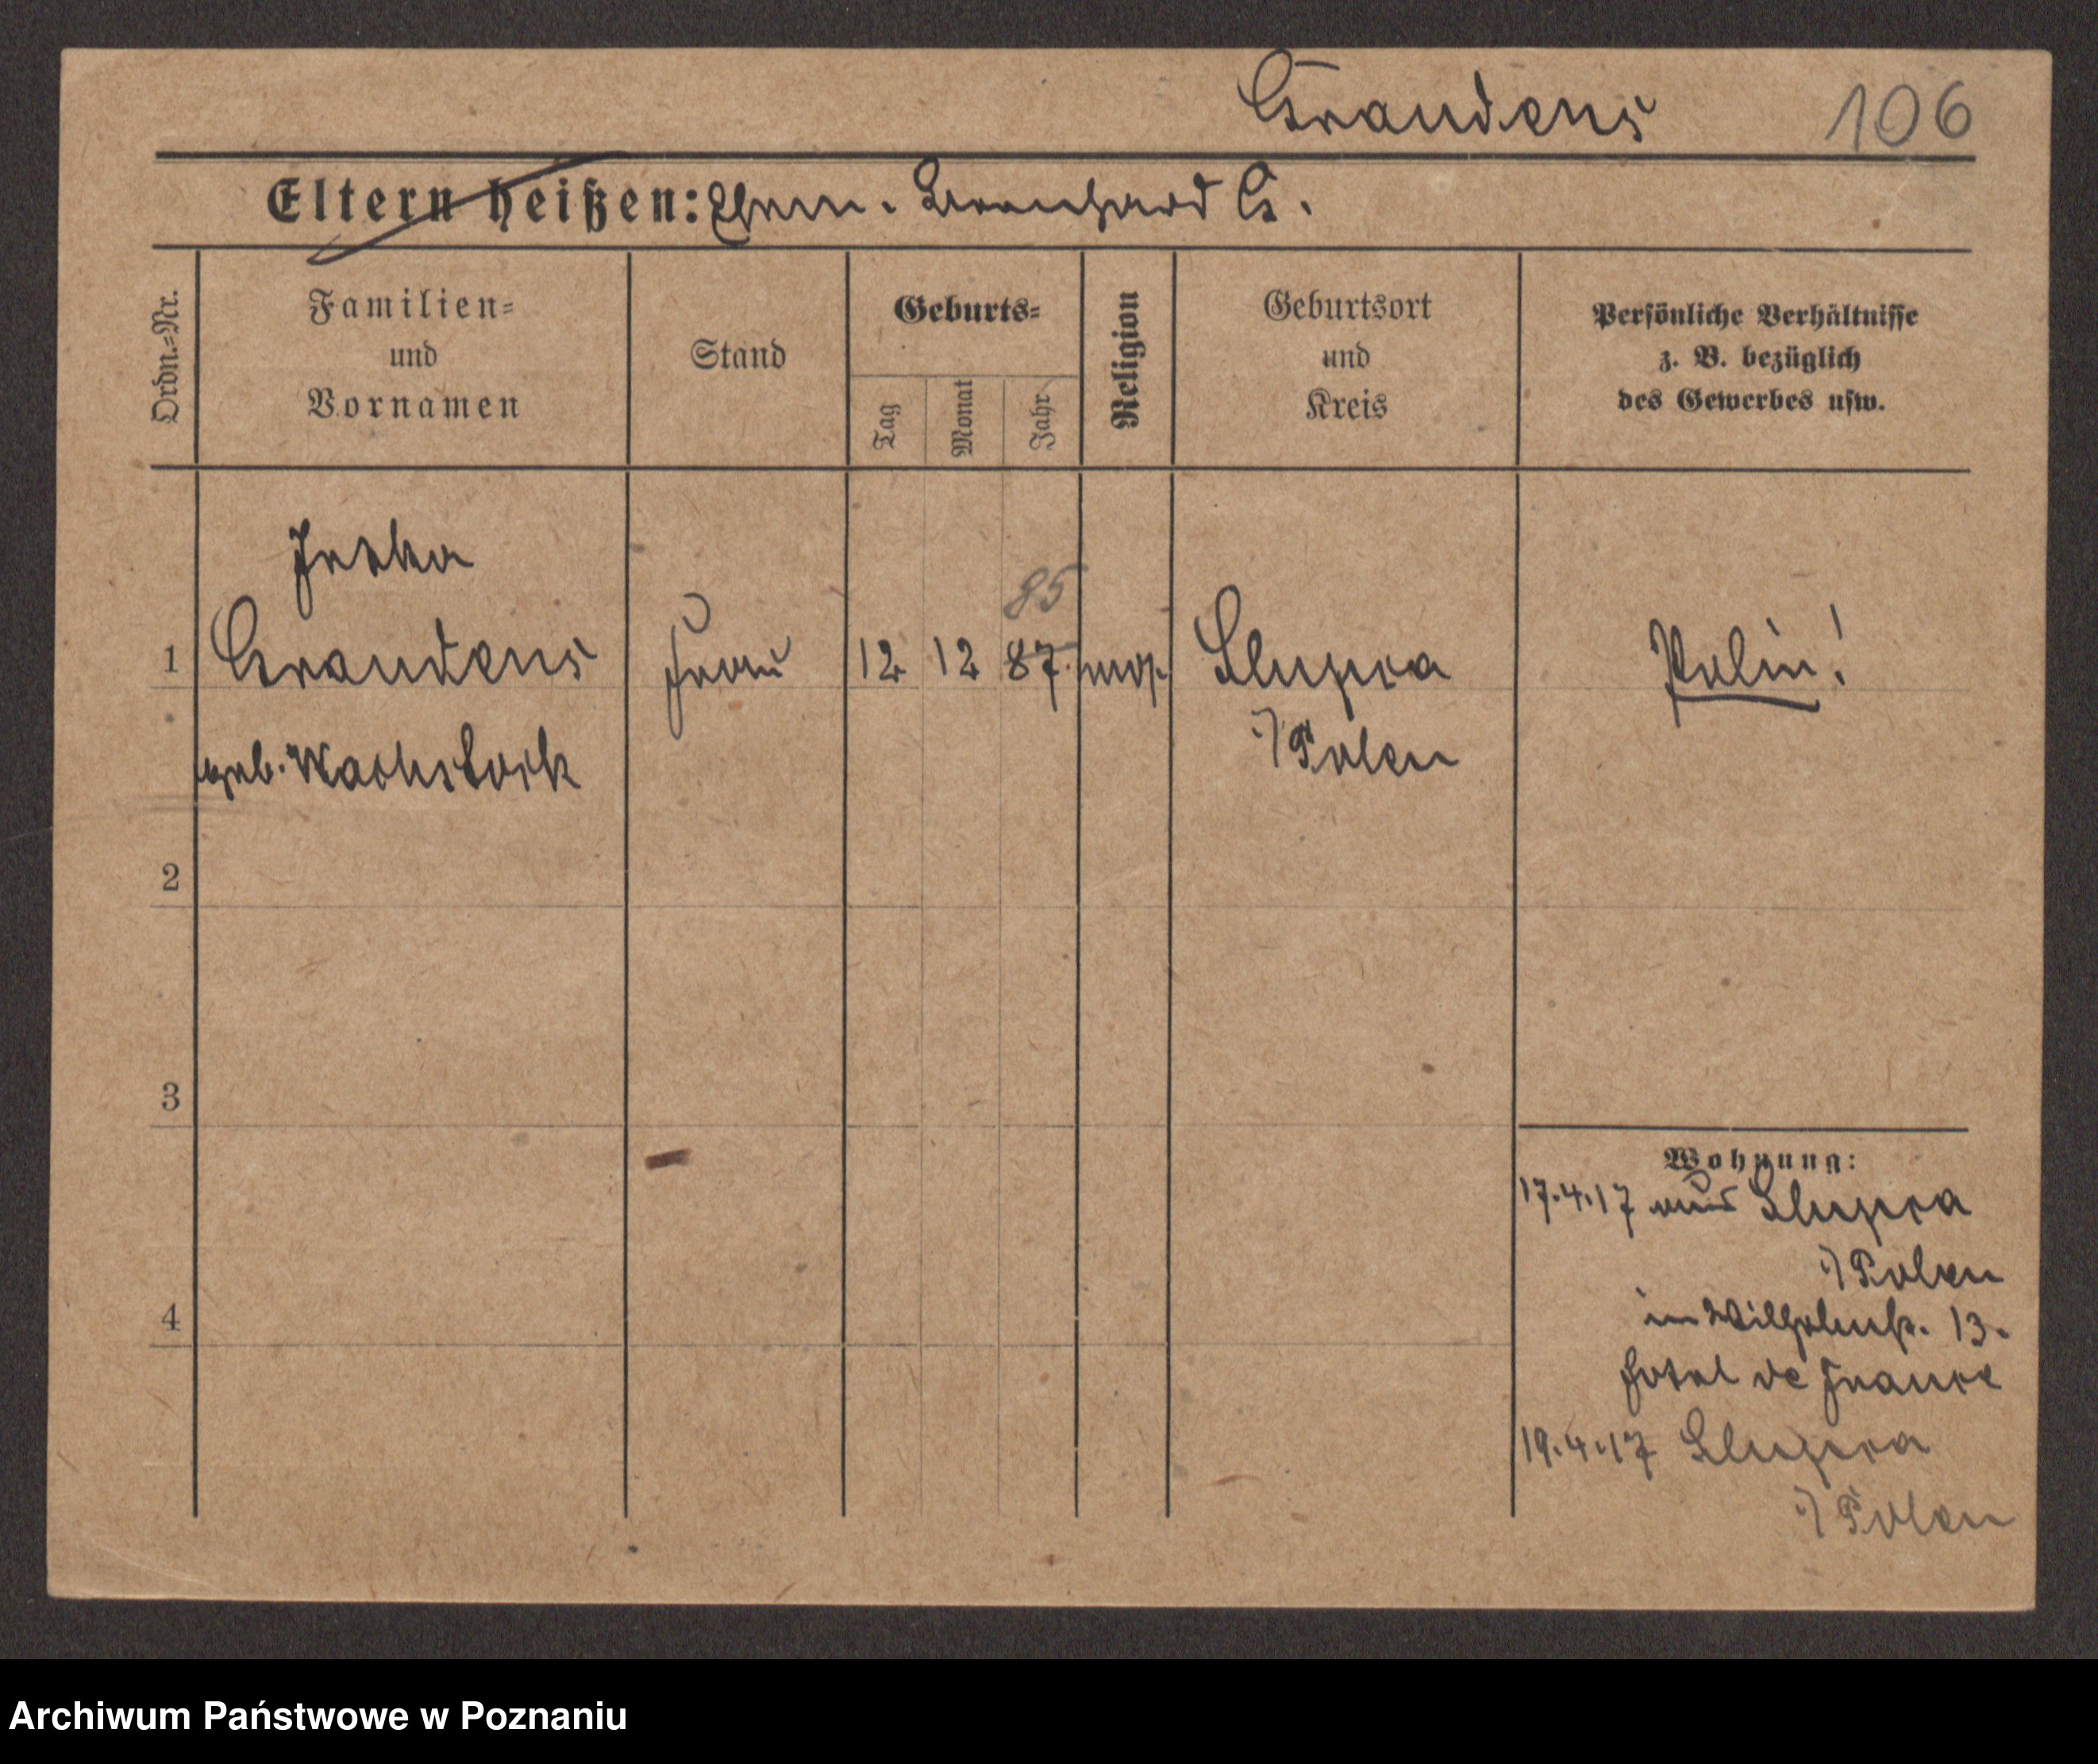 Graudens 106
Eltern heißen: Ehem. Bernhard G.
Ordn.-Nr.
Familien-
und
Vornamen
Stand
Geburts-
Tag
Monat
Jahr
Religion
Geburtsort
und
Kreis
Persönliche Verhältnisse
z. B. bezüglich
des Gewerbes usw.
85
1 Graudens Frau 12 12 87. mos. Slupca Polin!
i/Polen
geb. Wachstock
2
3
4
Wohnung:
17.4.17 aus Slupca
i/Polen
in Wilhelmstr. 13.
Hotel de France
19.4.17 Slupca
i/Polen
Archiwum Państwowe w Poznaniu